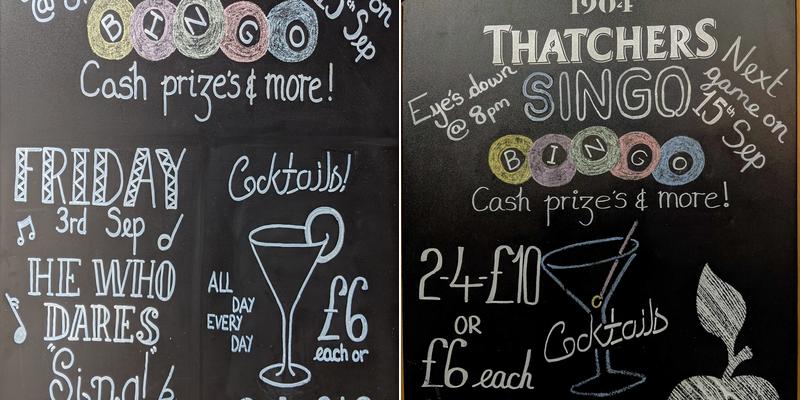 @ 8
on
15th Sep
BINGO
Cash prize's & more!
FRIDAY
3rd Sep
HE WHO
DARES
"Sing!
Cocktails!
ALL
DAY
EVERY
DAY
£6
each or
1904
THATCHERS
Eye's down
@ 8pm
SINGO
Next
game on
15th Sep
BINGO
Cash prize's & more!
2-4-£10
OR
£6 each
Cocktails